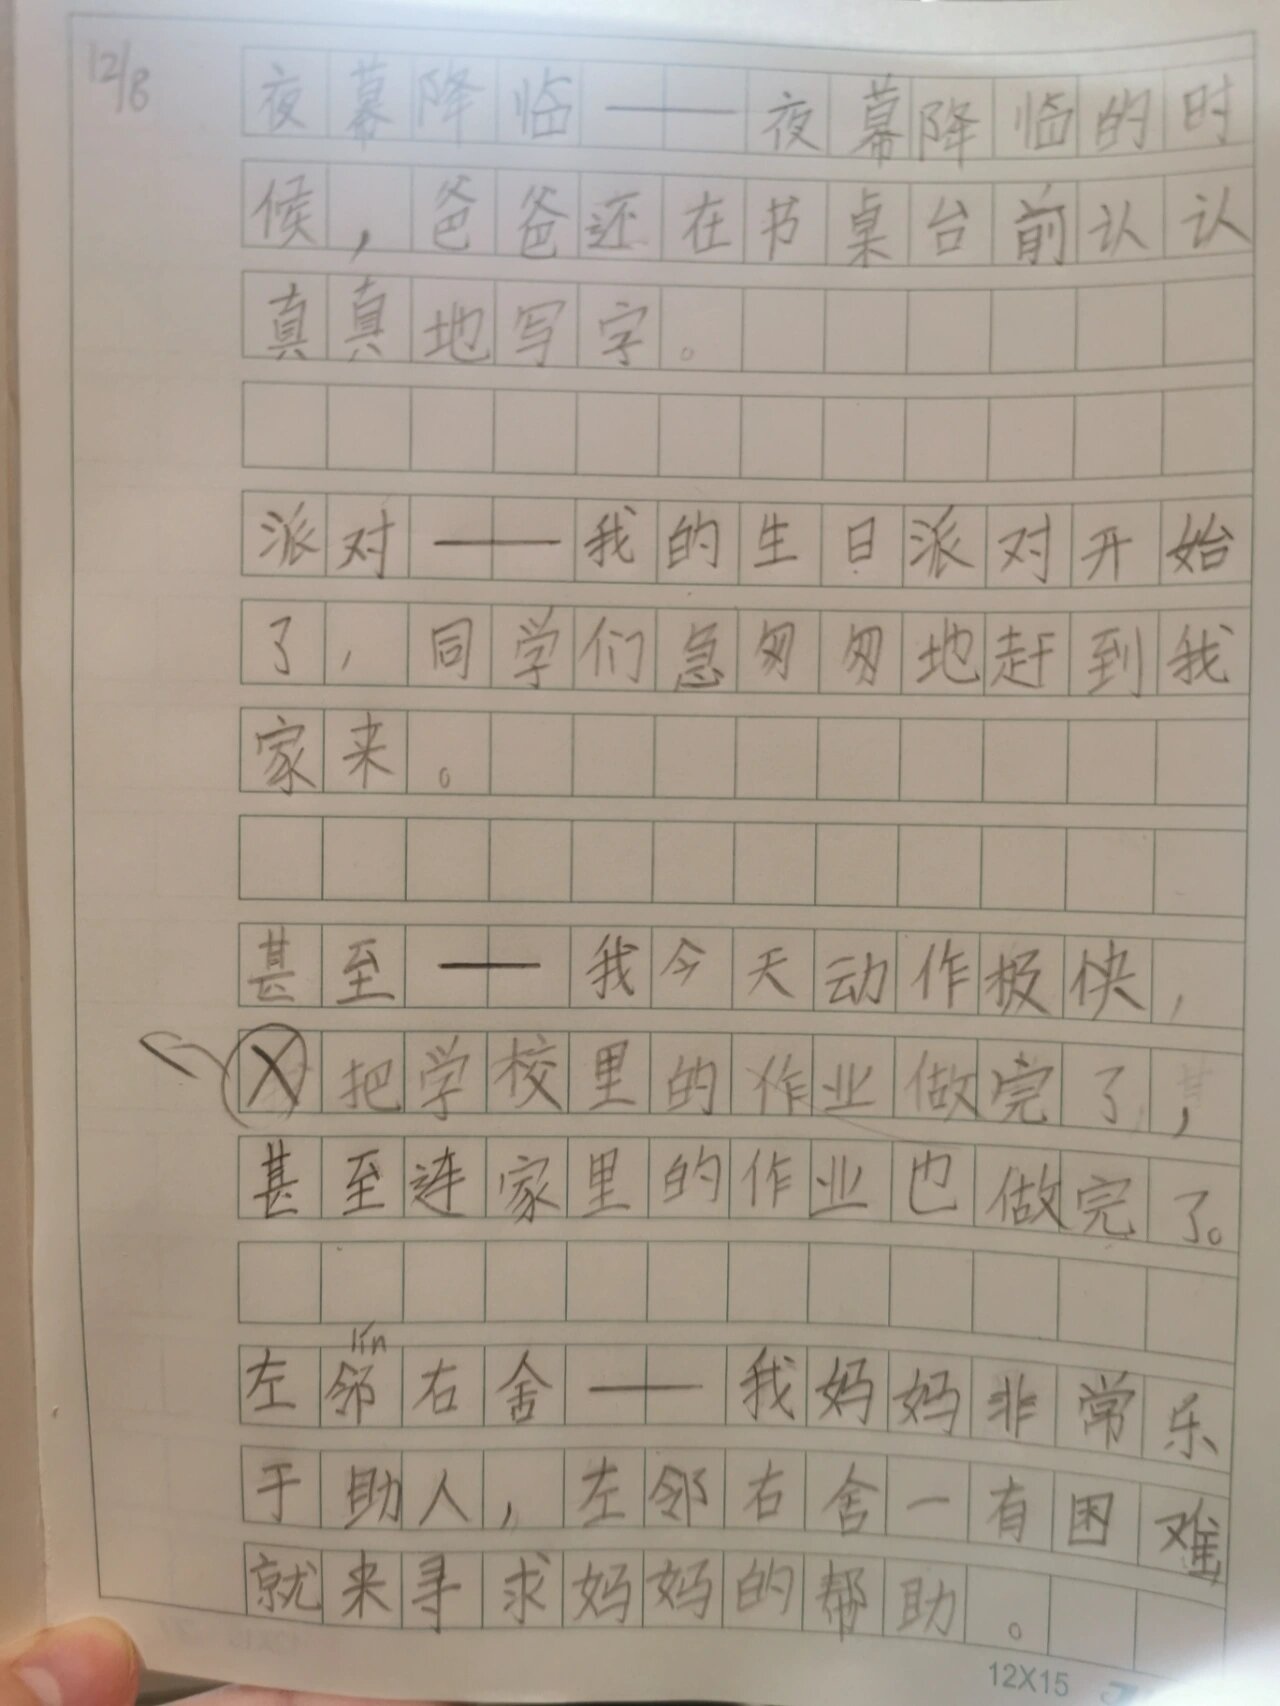 12/8
夜幕降临——夜幕降临的时
候，爸爸还在书桌台前认认
真真地写字。
派对——我的生日派对开始
了，同学们急匆匆地赶到我
家来。
甚至——我今天动作极快，
把学校里的作业做完了，
甚至连家里的作业也做完了。
lín
左邻右舍——我妈妈非常乐
于助人，左邻右舍一有困难
就来寻求妈妈的帮助。
12X15